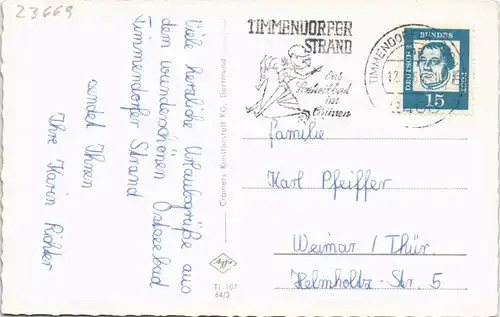 23669
Viele herzliche Urlaubsgrüße aus
dem wunderschönen Ostseebad
Timmendorfer Strand
sendet Ihnen
Ihre Karin Richter
Cramers Kunstanstalt KG, Dortmund
Agfa
Ti 107
64/3
TIMMENDORFER
STRAND
Das
im
TIMMENDOR
DEUTSCHE
BUNDES
POST
15
Familie
Karl Pfeiffer
Weimar / Thür.
Helmholtz-Str. 5